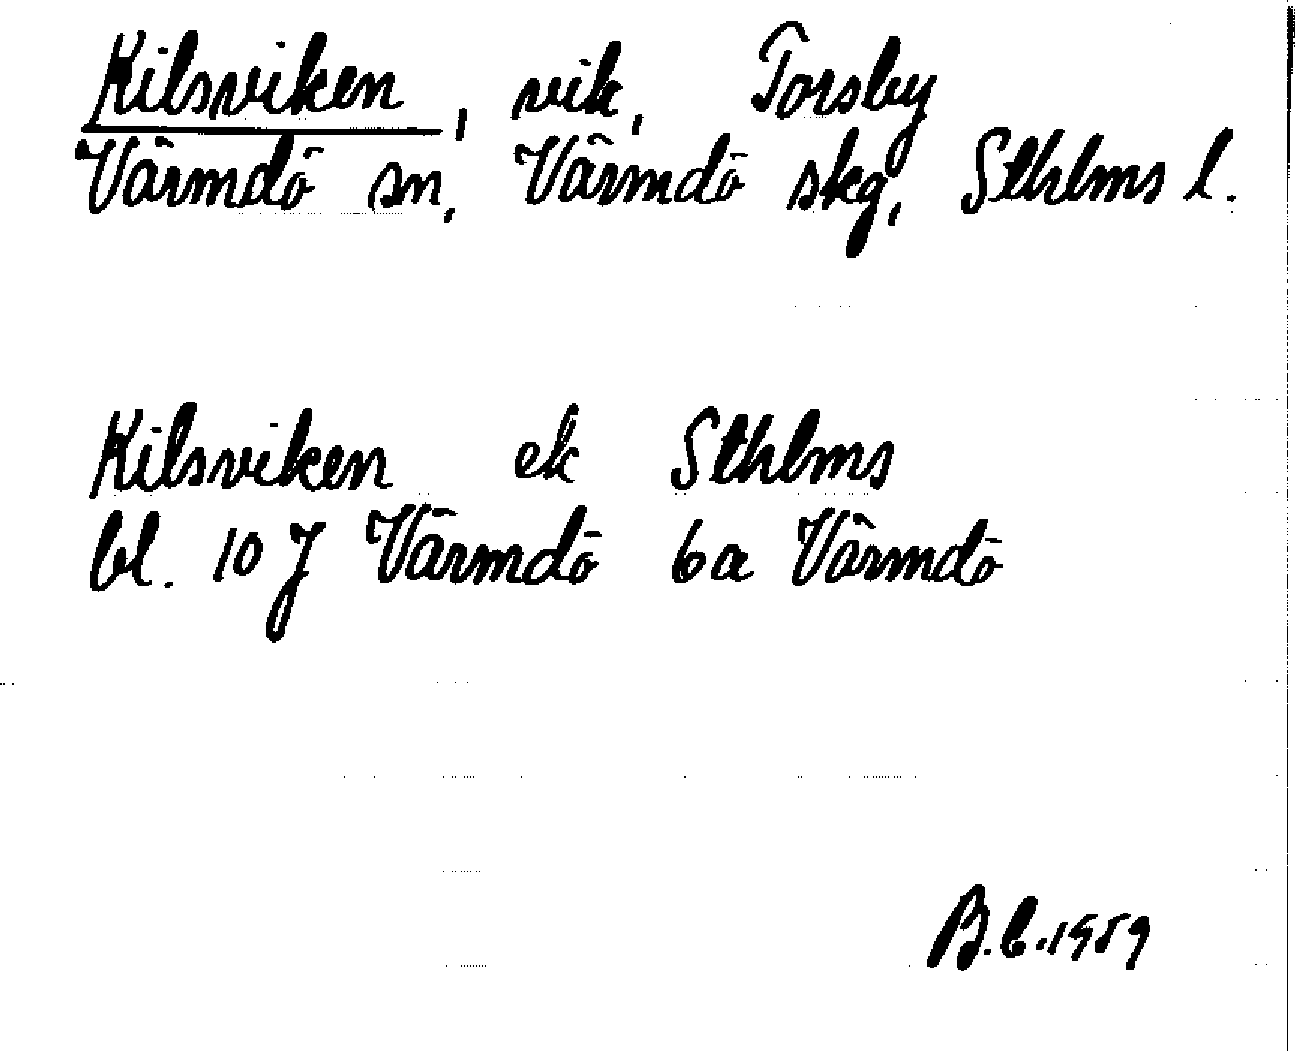 Kilsviken, vik, Torsby
Värmdö sn, Värmdö skg, Sthlms l.
Kilsviken ek Sthlms
bl. 10 J Värmdö 6a Värmdö
B.C. 1959